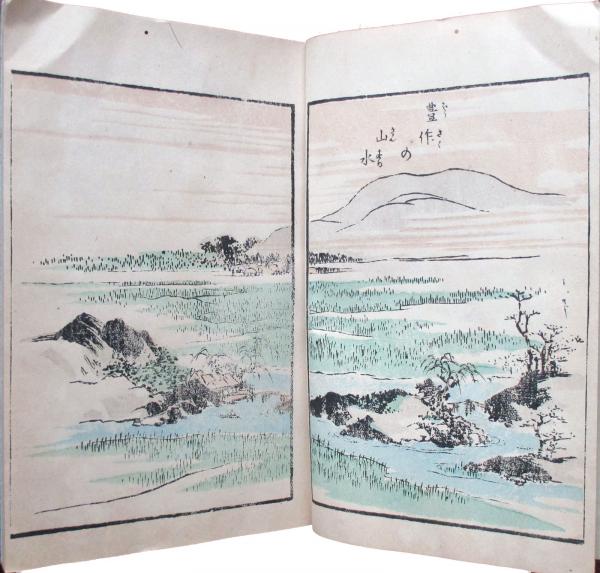 豊作の山水